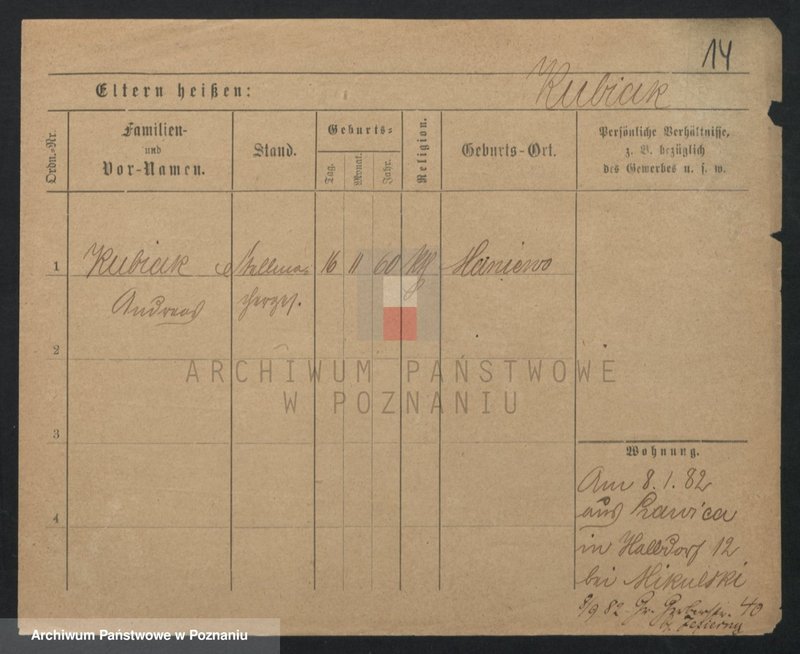 14
Eltern heißen:
Kubiak
Ordn.-Nr.
Familien-
und
Vor-Namen.
Stand.
Geburts-
Tag.
Monat.
Jahr.
Religion.
Geburts-Ort.
Persönliche Verhältnisse,
z. B. bezüglich
des Gewerbes u. s. w.
1 Kubiak Stellma- 16 11 60 Maniewo
Andreas cherges.
2
ARCHIWUM PAŃSTWOWE
W POZNANIU
3
Wohnung.
Am 8.1.82
aus Lawica
4
in Halbdorf 12
bei Mikulski
8/9 82 Gr. Gerberstr. 40
b. Jezierny
Archiwum Państwowe w Poznaniu